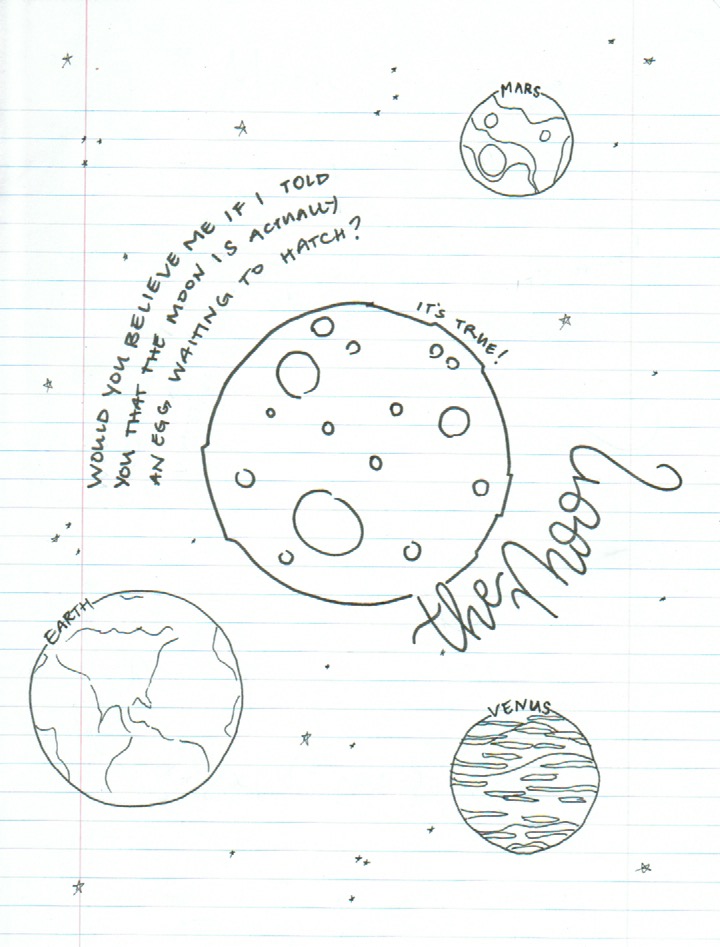 MARS
WOULD YOU BELIEVE ME IF I TOLD
YOU THAT THE MOON IS ACTUALLY
AN EGG WAITING TO HATCH?
IT'S TRUE!
the Moon
EARTH
VENUS